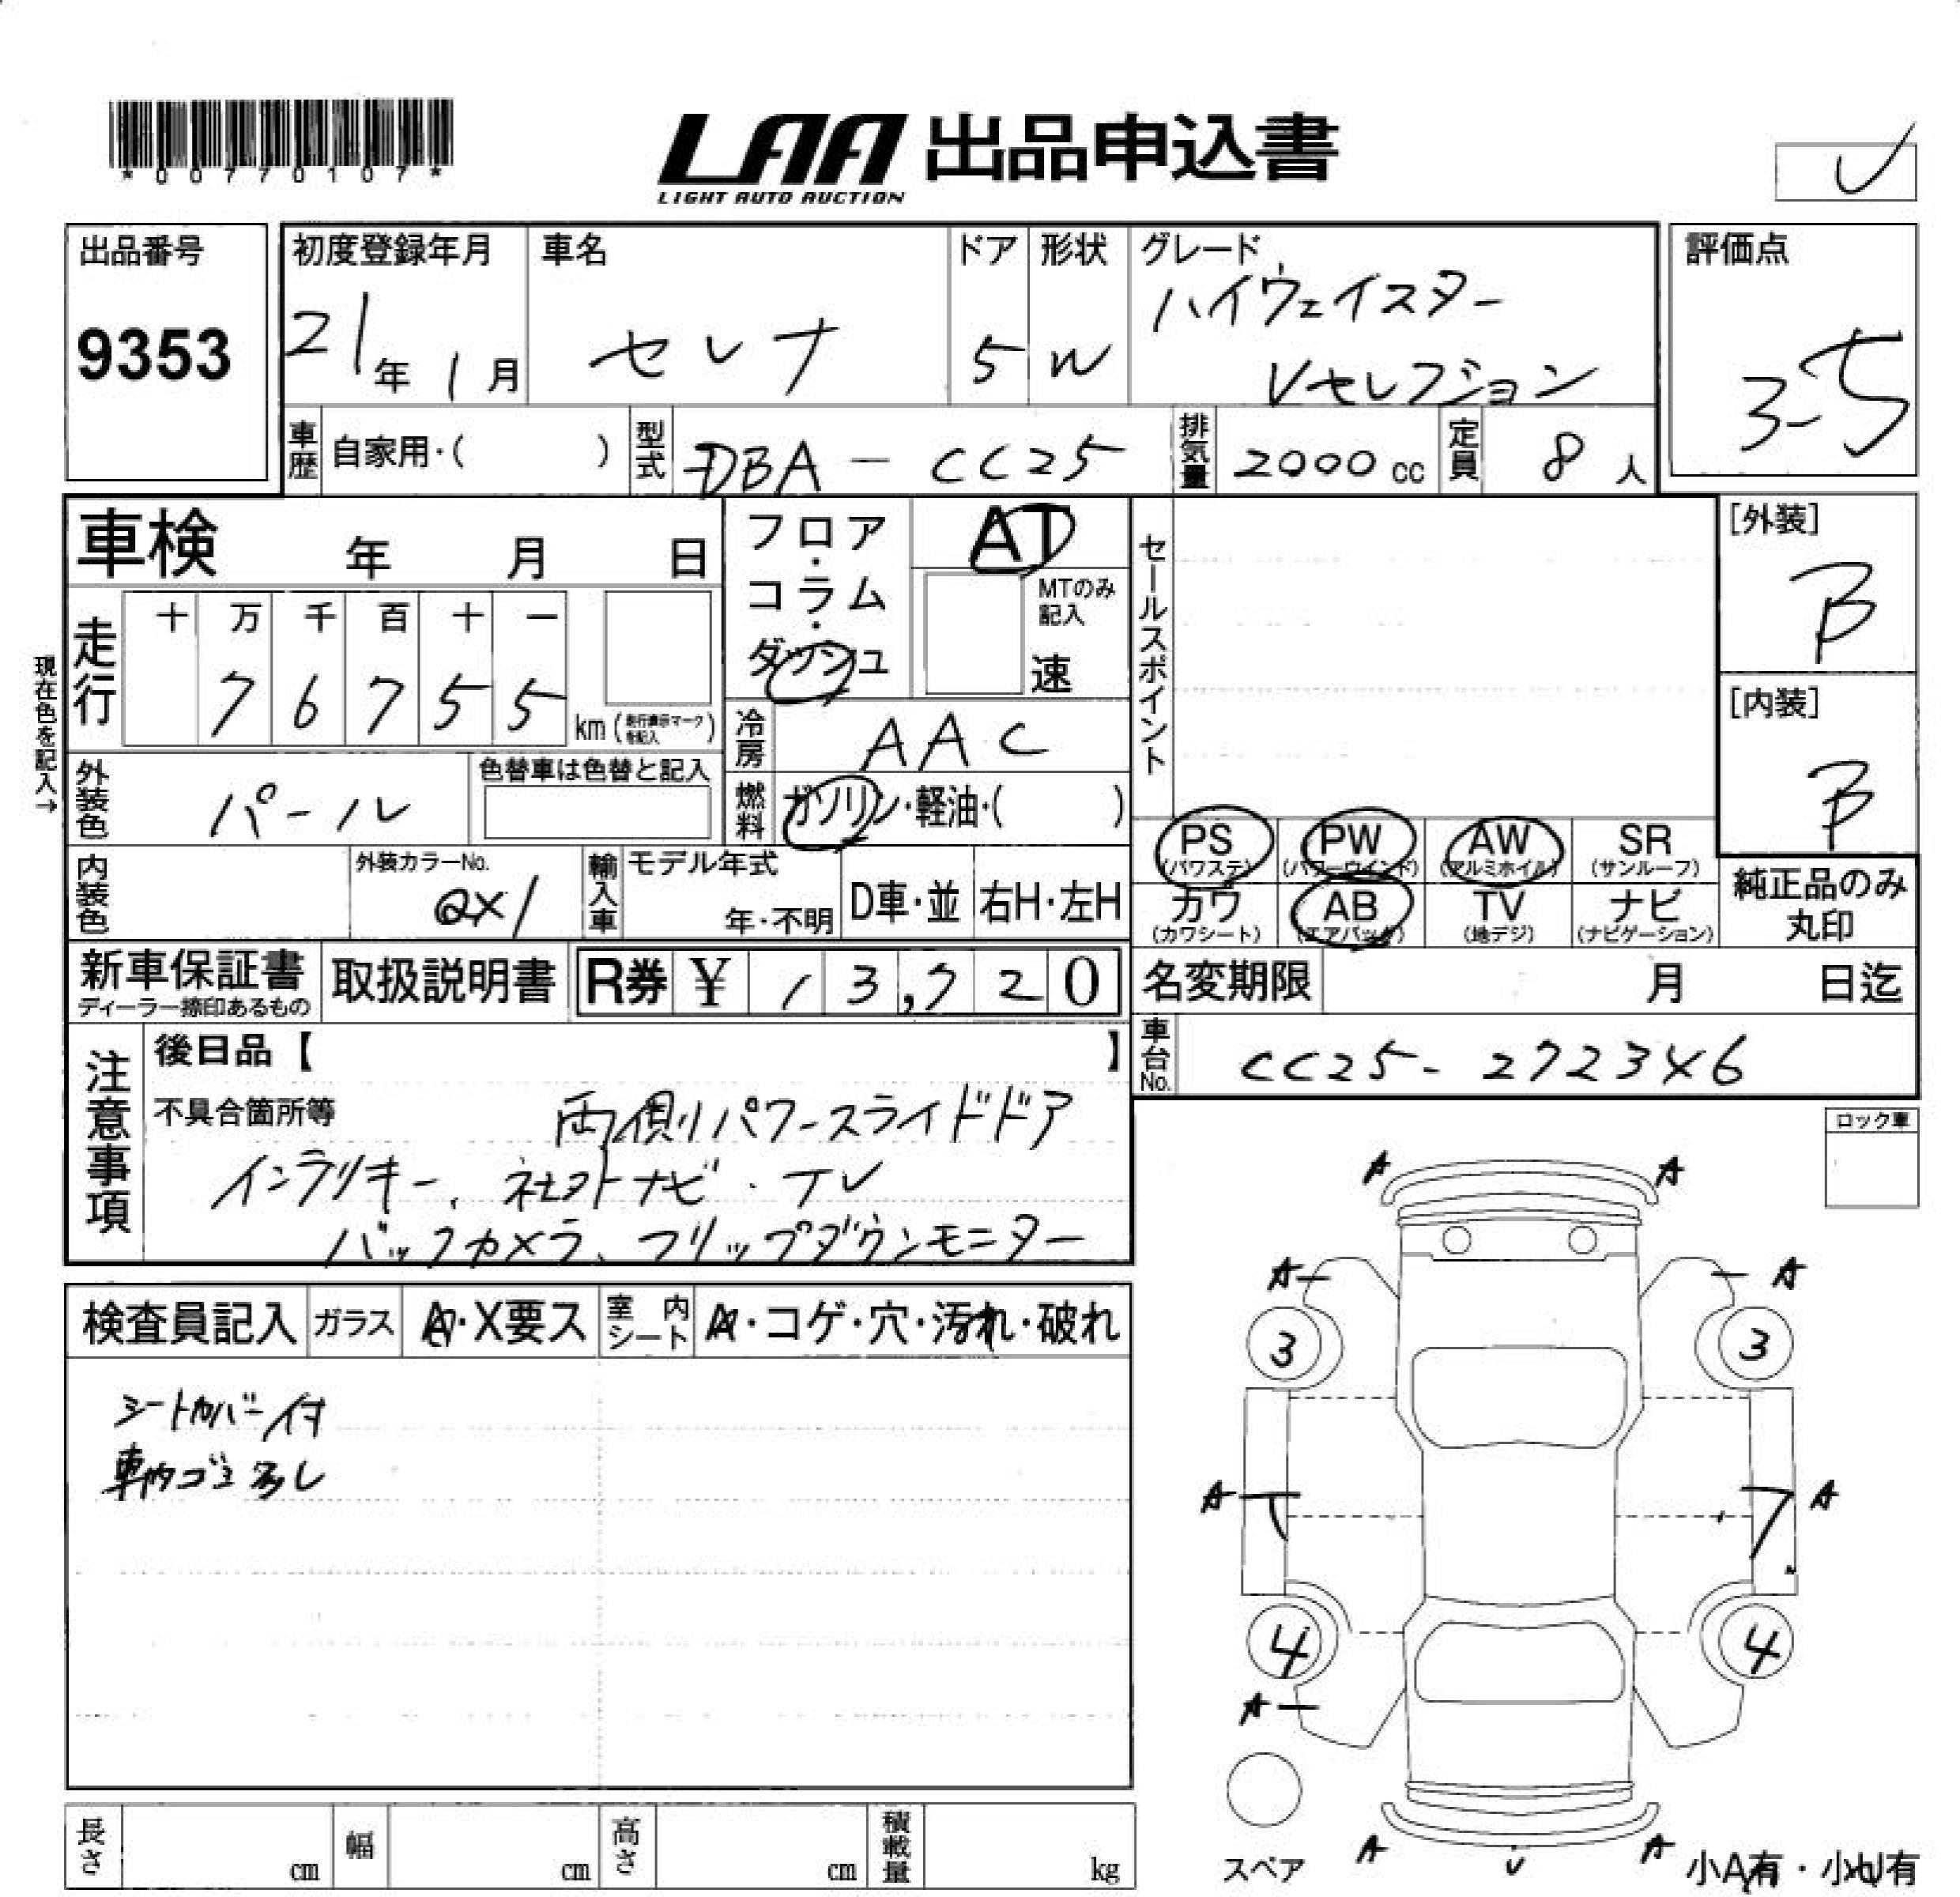 *00770107*
LAA 出品申込書
LIGHT AUTO AUCTION
出品番号
9353
初度登録年月
21年 1月
車名
セレナ
ドア
5
形状
W
グレード
ハイウェイスター
Vセレクション
評価点
3-5
車歴 自家用・( )
型式 DBA-CC25
排気量 2000cc
定員 8人
車検 年 月 日
現在色を記入→
走行
十 万 千 百 十 一
7 6 7 5 5
km (走行表示マークを記入)
フロア・コラム・ダッシュ
AT
MTのみ記入
速
冷房 AAC
燃料 ガソリン・軽油・( )
セールスポイント
[外装]
B
[内装]
B
外装色 パール
色替車は色替と記入
内装色
外装カラーNo.
QX1
輸入車 モデル年式
年・不明
D車・並
右H・左H
PS (パワステ)
PW (パワーウインド)
AW (アルミホイル)
SR (サンルーフ)
カワ (カワシート)
AB (エアバッグ)
TV (地デジ)
ナビ (ナビゲーション)
純正品のみ丸印
新車保証書
ディーラー捺印あるもの
取扱説明書
R券 ¥ 13,720
名変期限 月 日迄
車台No. CC25-2723X6
注意事項
後日品【 】
不具合箇所等
両側パワースライドドア
インテリキー、社外ナビ・TV
バックカメラ、フリップダウンモニター
ロック車
検査員記入
ガラス
A・X要ス
室内シート
A・コゲ・穴・汚れ・破れ
シートカバー付
車内ゴミ多し
A A
A A
3 3
A A
4 4
A
A A
スペア
小A有・小U有
長さ cm
幅 cm
高さ cm
積載量 kg